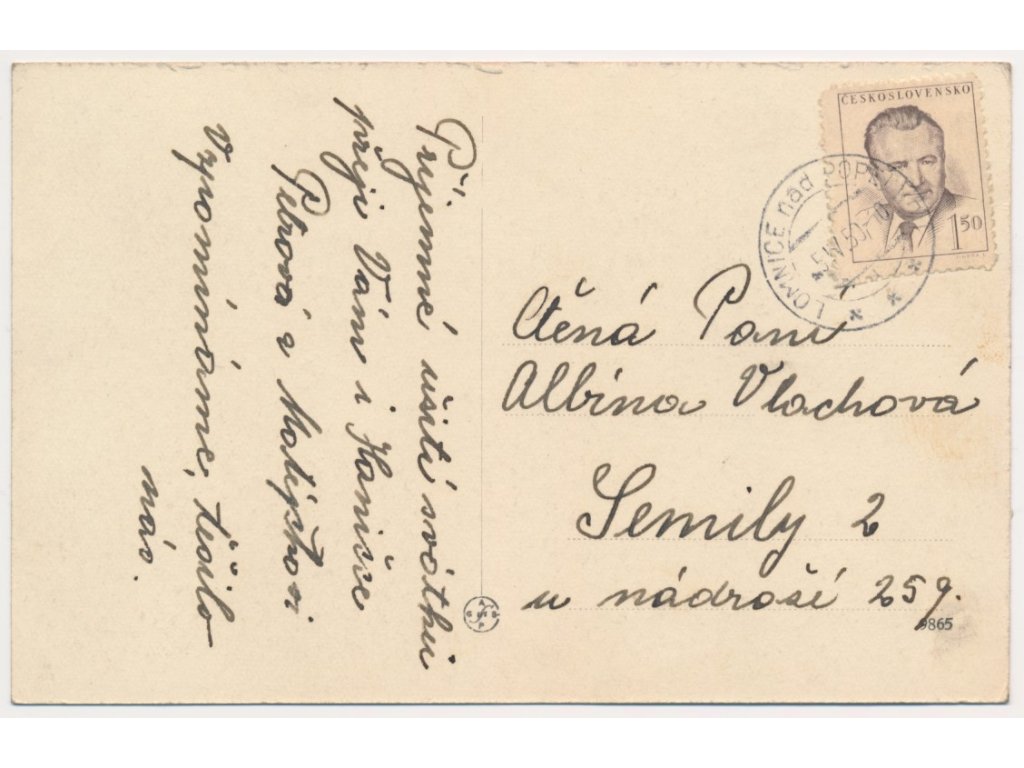 Příjemné užití svátků
přeji Vám i Haničce
Petrová z Matějskovi
Vzpomínáme, těšilo
nás.
ČESKOSLOVENSKO
150
LOMNICE nad POP
5.IV.50-
Ctěná Paní
Albína Vlachová
Semily 2
u nádroží 259.
9865